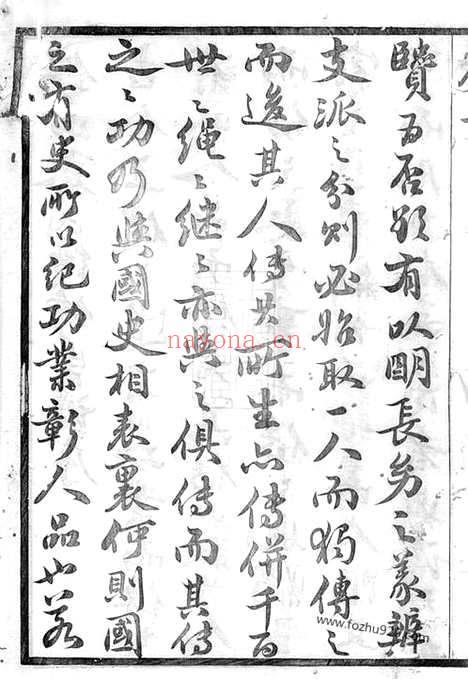 否欲有以明長幼之義辨
支派之分則必始取一人而獨傳之
而逡其人傳其所生亦傳併千百
世〻繩〻継〻亦與之俱傳而其傳
之〻功乃與國史相表裏何則國
之有史所以紀功業彰人品也若
nayona.cn